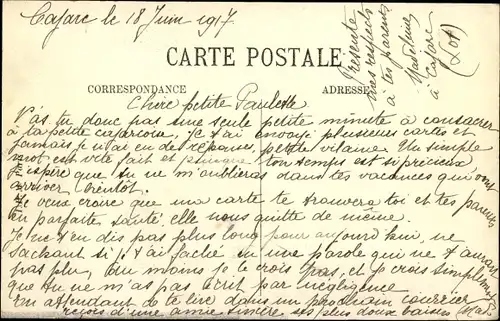 Cajarc le 18 Juin 1917
CARTE POSTALE
CORRESPONDANCE
ADRESSE
Présente
mes respects
à tes parents
Madeleine
à Cajarc
(Lot)
Chère petite Paulette
N'as tu donc pas une seule petite minute à consacrer
à ta petite cajarcoise, je t'ai envoyé plusieures cartes et
jamais je n'ai eu des réponses, petite vilaine. Un simple
mot est vite fait et puisque ton temps est si précieux
J'espère que tu ne m'oublieras dans tes vacances qui vont
arriver bientôt.
Je veux croire que une carte te trouvera toi et tes parents
en parfaite santé, elle nous quitte de même.
Je ne t'en dis pas plus long pour aujourd'hui, ne
sachant si je t'ai faché en une parole qui ne t'aurait
pas plu, Du moins je le crois pas, et je crois simplement
que tu ne m'as pas écrit par négligence
En attendant de te lire dans un prochain courrier
reçois d'une amie sincère ses plus doux baisers